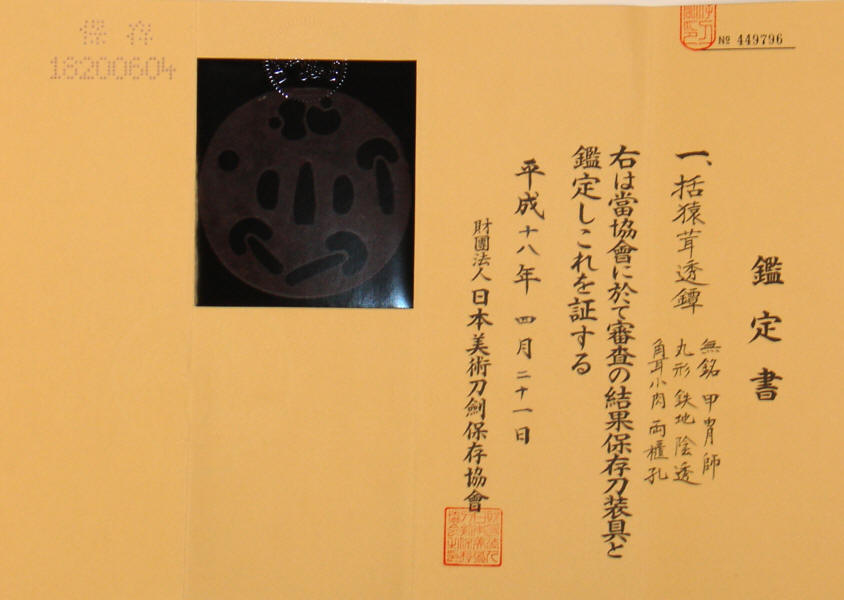 鑑定書
一、括猿茸透鐔
無銘 甲冑師
丸形 鉄地 陰透
角耳小肉 両櫃孔
右は當協會に於て審査の結果保存刀装具と
鑑定しこれを証する
平成十八年 四月二十一日
財團法人 日本美術刀劍保存協會
№ 449796
保存
18200604